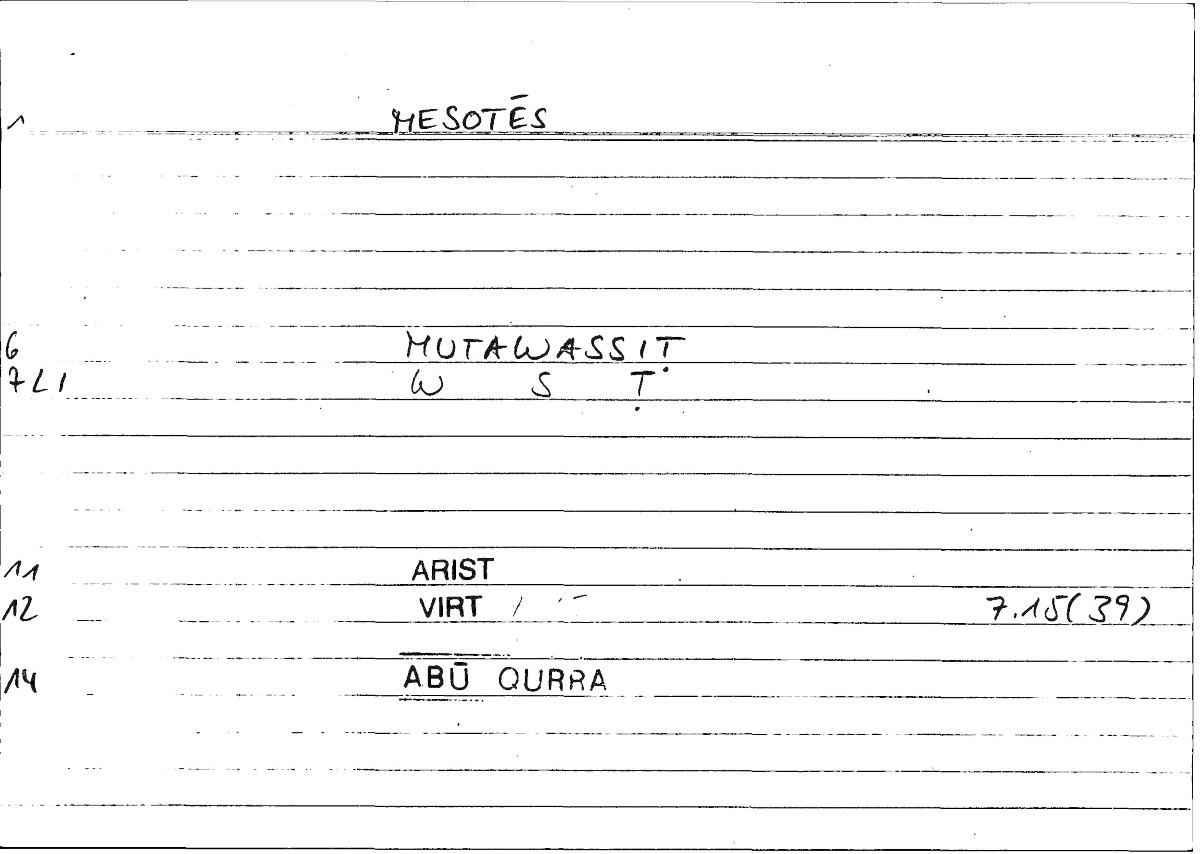 1 MESOTĒS
6 MUTAWASSIṬ
7LI W S Ṭ
11 ARIST
12 VIRT 7.15(39)
14 ABŪ QURRA